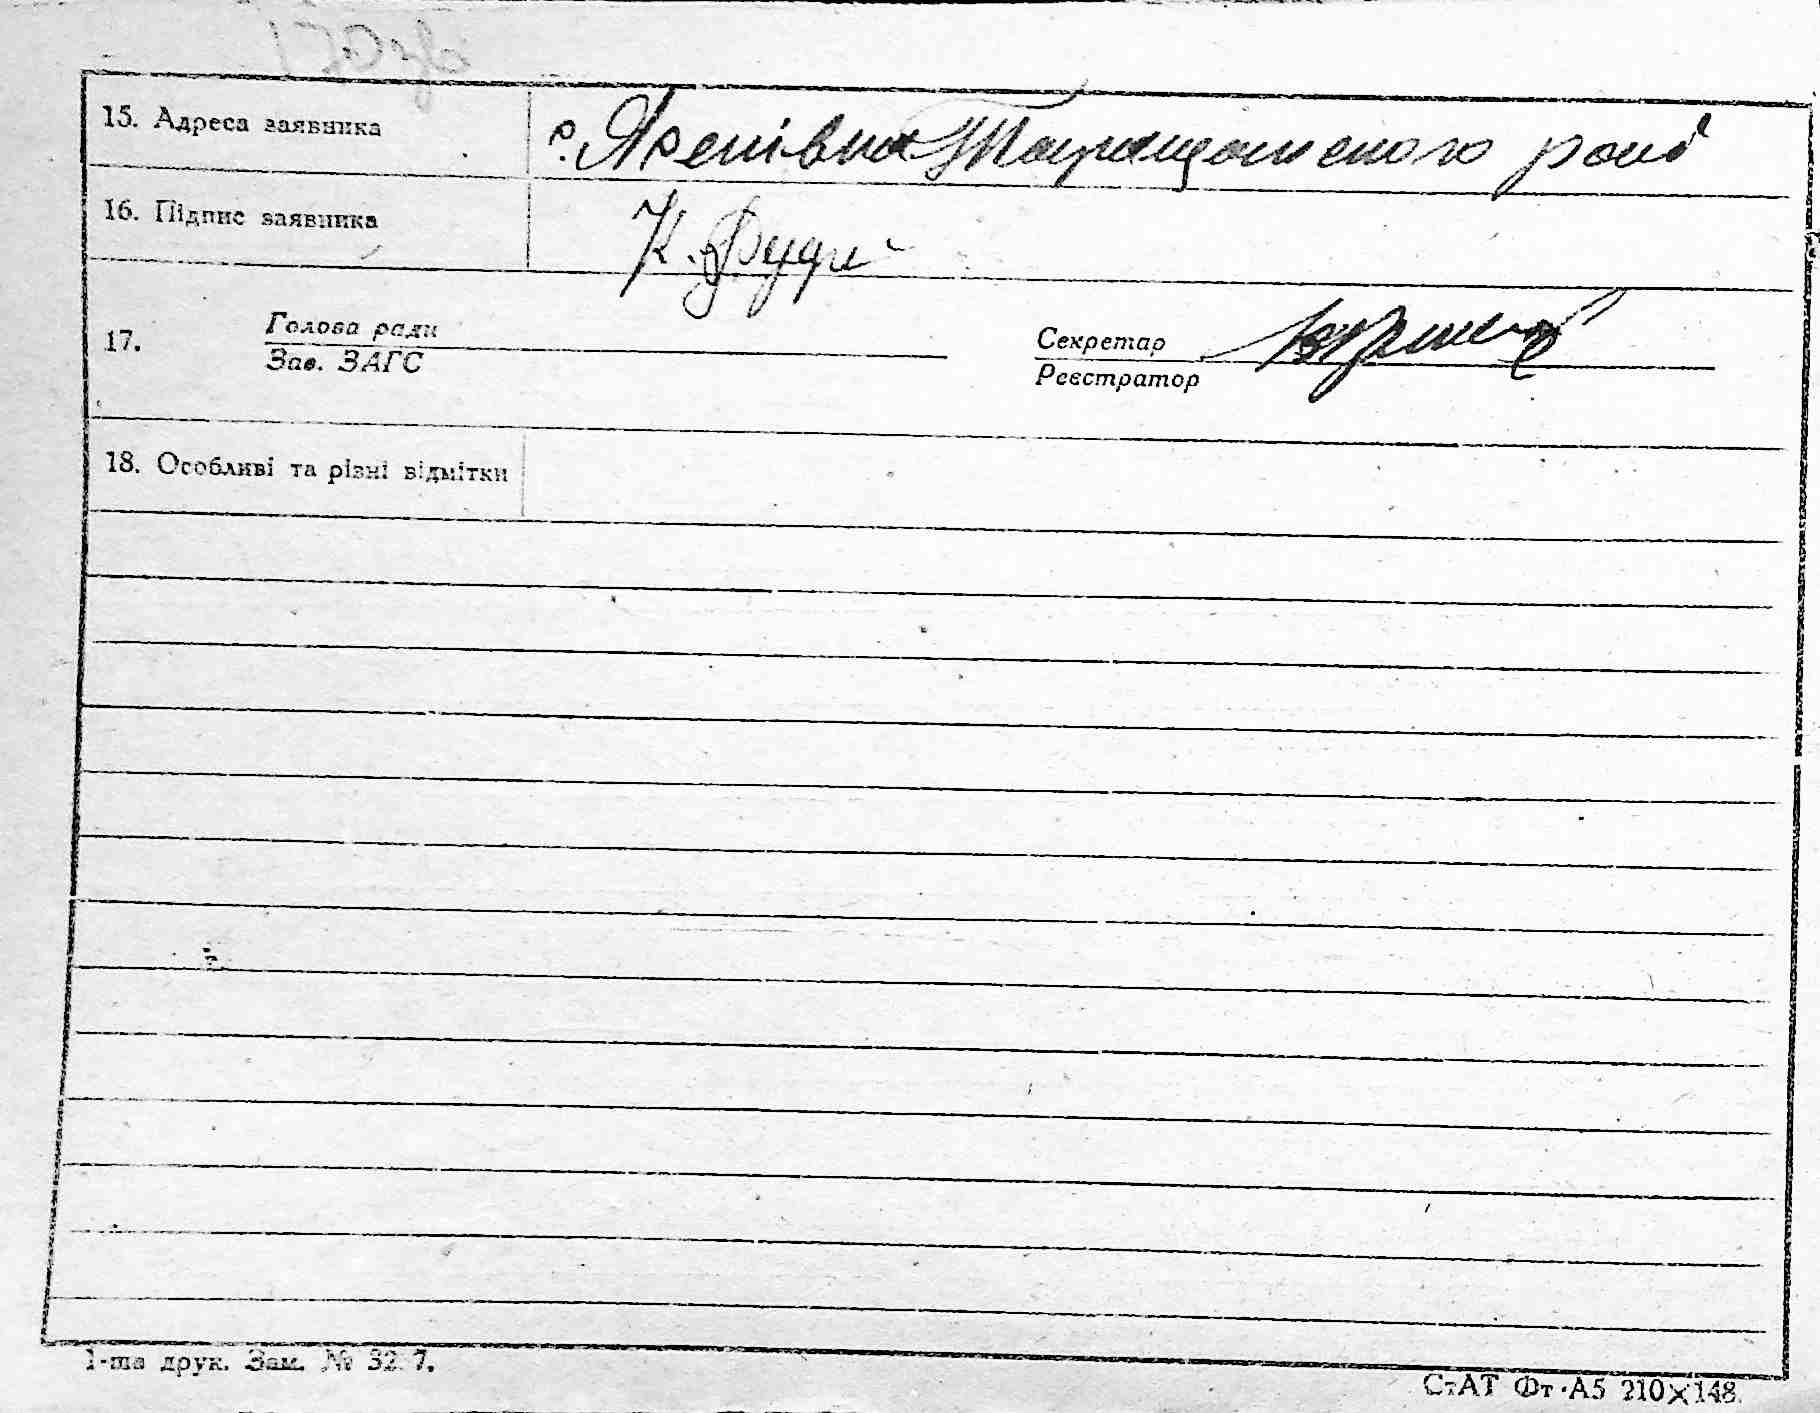 15. Адреса заявника с. Ясенівка Таращанського рай
16. Підпис заявника К.
17. Голова ради Секретар
Зав. ЗАГС Реєстратор
18. Особливі та різні відмітки
1-ша друк. Зам. № 32 7.
СтАТ Фт·А5 210×148.